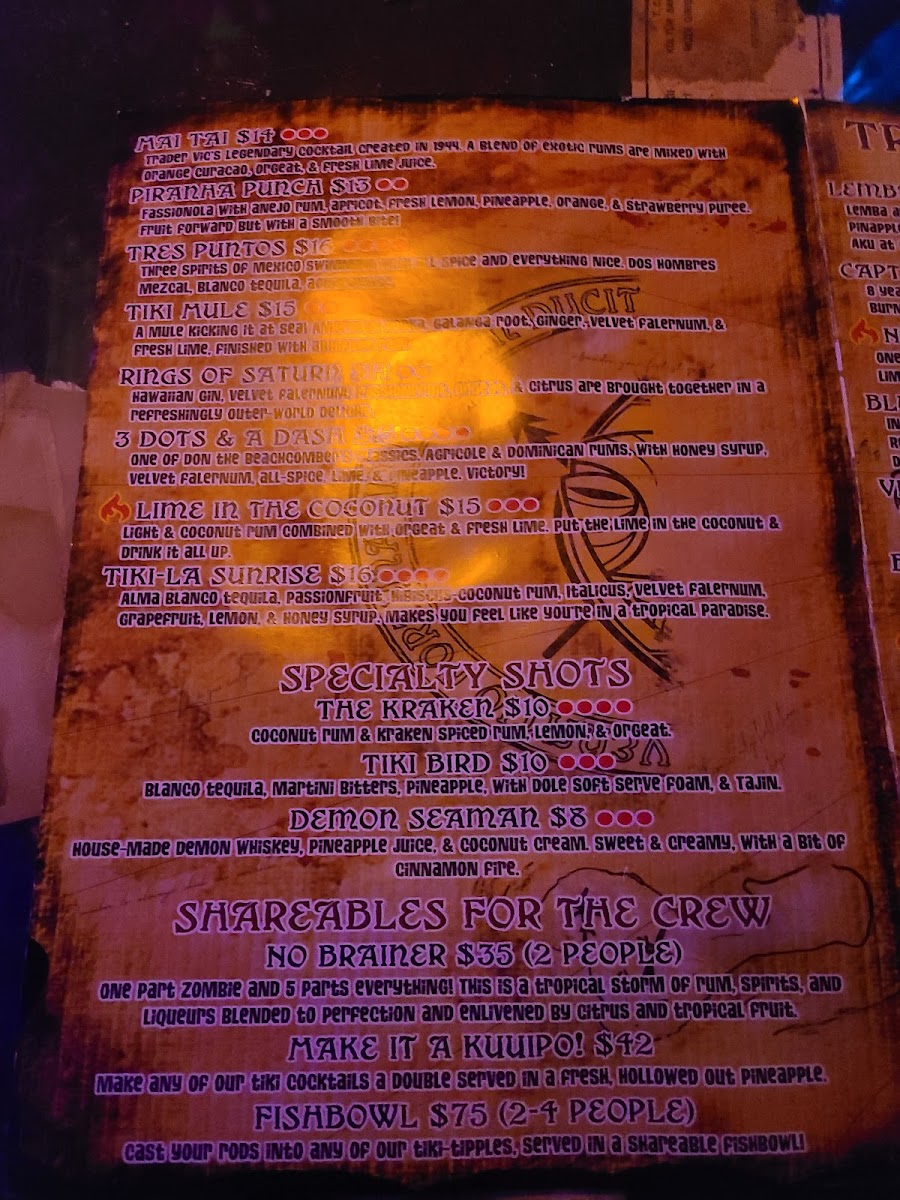 MAI TAI $14
TRADER VIC'S LEGENDARY COCKTAIL CREATED IN 1944. A BLEND OF EXOTIC RUMS ARE MIXED WITH
ORANGE CURACAO, ORGEAT, & FRESH LIME JUICE.
PIRANHA PUNCH $13
FASSIONOLA WITH ANEJO RUM, APRICOT, FRESH LEMON, PINEAPPLE, ORANGE, & STRAWBERRY PUREE.
FRUIT FORWARD BUT WITH A SMOOTH BITE!
TRES PUNTOS $16
THREE SPIRITS OF MEXICO SPICE AND EVERYTHING NICE. DOS HOMBRES
MEZCAL, BLANCO TEQUILA,
TIKI MULE $15
A MULE KICKING IT AT SEA! GALANGA ROOT, GINGER, VELVET FALERNUM, &
FRESH LIME. FINISHED WITH
RINGS OF SATURN
HAWAIIAN GIN, VELVET FALERNUM, & CITRUS ARE BROUGHT TOGETHER IN A
REFRESHINGLY OUTER-WORLD DELIGHT.
3 DOTS & A DASH
ONE OF DON THE BEACHCOMBER'S CLASSICS. AGRICOLE & DOMINICAN RUMS, WITH HONEY SYRUP,
VELVET FALERNUM, ALL-SPICE, LIME, & PINEAPPLE. VICTORY!
LIME IN THE COCONUT $15
LIGHT & COCONUT RUM COMBINED WITH ORGEAT & FRESH LIME. PUT THE LIME IN THE COCONUT &
DRINK IT ALL UP.
TIKI-LA SUNRISE $16
ALMA BLANCO TEQUILA, PASSIONFRUIT, HIBISCUS-COCONUT RUM, ITALICUS, VELVET FALERNUM,
GRAPEFRUIT, LEMON, & HONEY SYRUP. MAKES YOU FEEL LIKE YOU'RE IN A TROPICAL PARADISE.
SPECIALTY SHOTS
THE KRAKEN $10
COCONUT RUM & KRAKEN SPICED RUM, LEMON, & ORGEAT.
TIKI BIRD $10
BLANCO TEQUILA, MARTINI BITTERS, PINEAPPLE, WITH DOLE SOFT SERVE FOAM, & TAJIN.
DEMON SEAMAN $8
HOUSE-MADE DEMON WHISKEY, PINEAPPLE JUICE, & COCONUT CREAM. SWEET & CREAMY, WITH A BIT OF
CINNAMON FIRE.
SHAREABLES FOR THE CREW
NO BRAINER $35 (2 PEOPLE)
ONE PART ZOMBIE AND 5 PARTS EVERYTHING! THIS IS A TROPICAL STORM OF RUM, SPIRITS, AND
LIQUEURS BLENDED TO PERFECTION AND ENLIVENED BY CITRUS AND TROPICAL FRUIT.
MAKE IT A KUUIPO! $42
MAKE ANY OF OUR TIKI COCKTAILS A DOUBLE SERVED IN A FRESH, HOLLOWED OUT PINEAPPLE.
FISHBOWL $75 (2-4 PEOPLE)
CAST YOUR RODS INTO ANY OF OUR TIKI-TIPPLES, SERVED IN A SHAREABLE FISHBOWL!